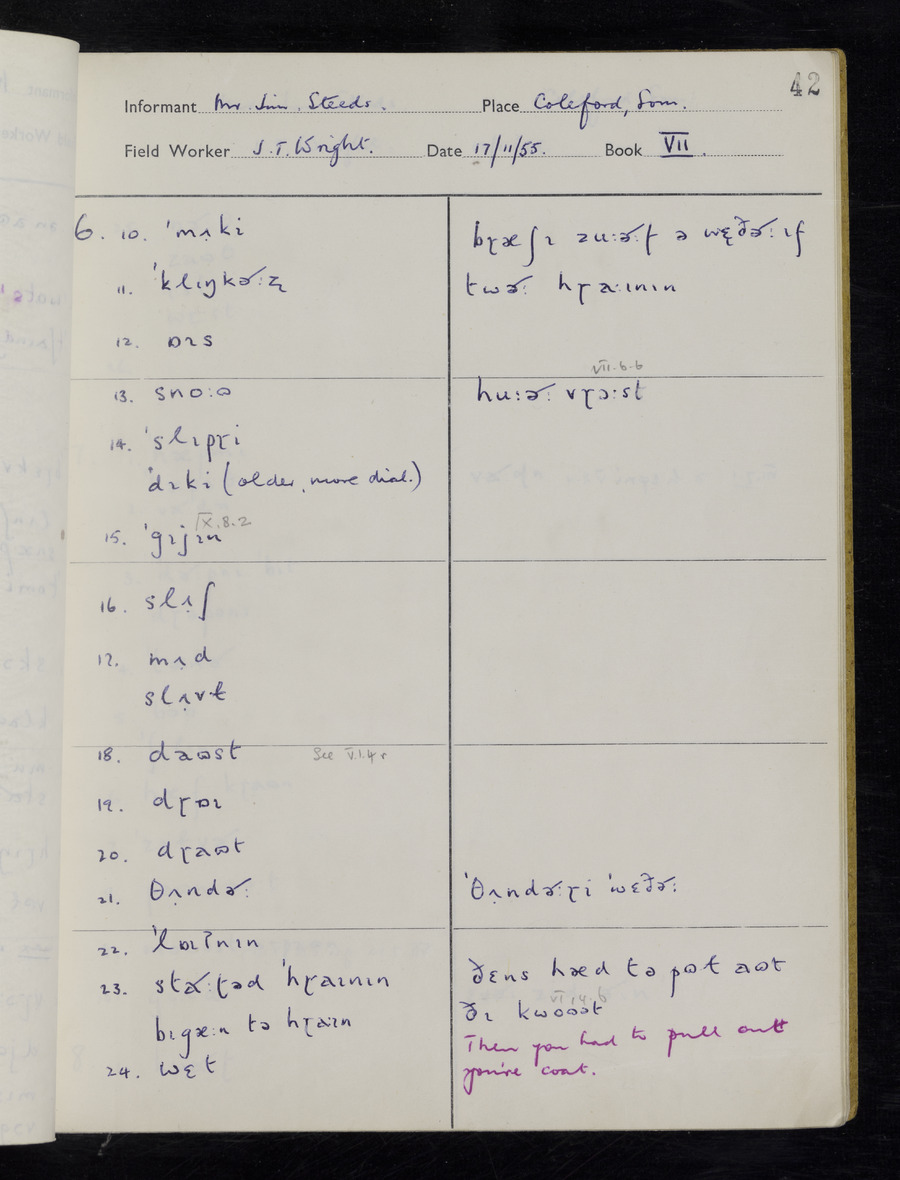 42
Informant Mr. Jim Steeds. Place Coleford, Som.
Field Worker J.T. Wright. Date 17/11/55. Book VII.
6. 10. ˈmʌ̣ki
11. ˈklɪŋkə˞ːz̨
12. ɒɪs
13. snoːɷ
14. ˈslɪpɽi
ˈdɪki (older, more dial.)
IX.8.2
15. ˈgɪjɪn
16. slʌ̣ʃ
17. mʌ̣d
slʌ̣vt
18. daɷst See V.1.4 r
19. dɽɒɪ
20. dɽaɷt
21. θʌ̣ndə˞ː
22. ˈlɒɪʔnɪn
23. sta˞ːɽəd ˈhɽaɪnɪn
bɪgæːn tə hɽaɪn
24. wɛt
twə˞ː hɽaːɪnɪn
VII.6.6
huːə˞ː vɽɔːst
ˈθʌ̣ndə˞ːɽi ˈwɛðə˞ː
ðɛns hæd tə pɷt aɷt
VI.14.6
ðɪ kwoɷət
Then you had to pull out
you're coat.